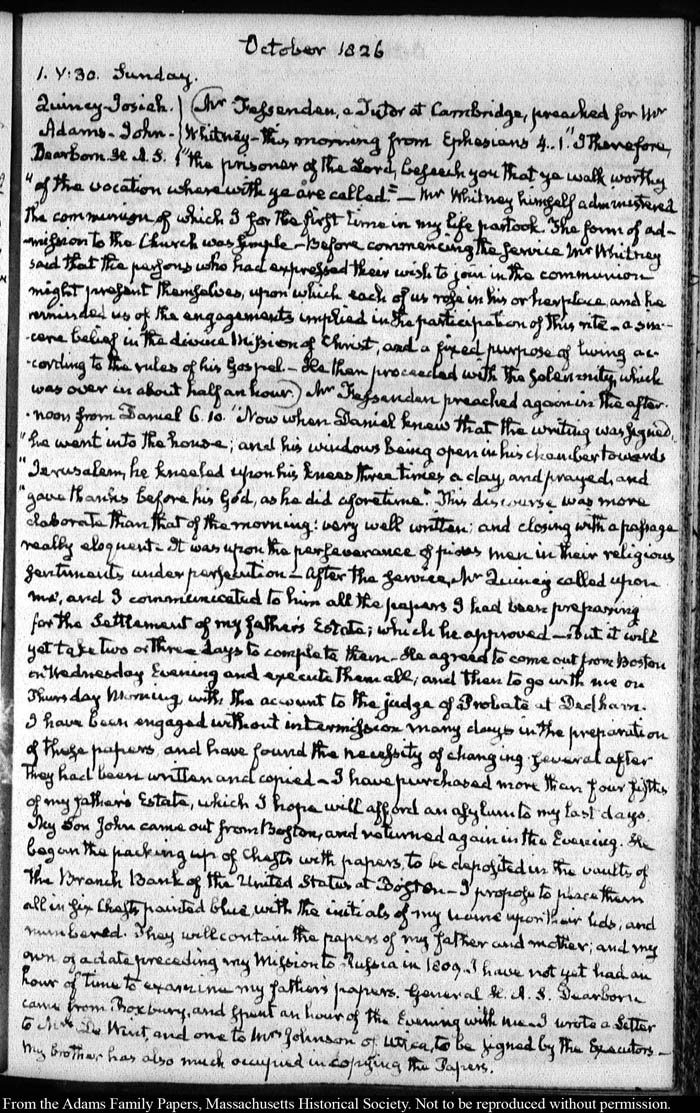 October 1826
1. V:30. Sunday.
Quincy-Josiah. Mr Fessenden, a Tutor at Cambridge, preached for Mr
Adams-John- Whitney this morning from Ephesians 4..1 "I therefore,
Dearborn H. A. S. "the prisoner of the Lord, beseech you that ye walk worthy
"of the vocation wherewith ye are called." — Mr Whitney himself administered
the communion of which I for the first time in my life partook. The form of ad-
-mission to the Church was simple — Before commencing the service Mr Whitney
said that the persons who had expressed their wish to join in the communion
might present themselves, upon which each of us rose in his or her place, and he
reminded us of the engagements implied in the participation of this rite — a sin-
-cere belief in the divine Mission of Christ, and a fixed purpose of living ac-
-cording to the rules of his Gospel — He then proceeded with the solemnity, which
was over in about half an hour. Mr Fessenden preached again in the after-
-noon from Daniel 6.10. "Now when Daniel knew that the writing was signed,
"he went into the house; and his windows being open in his chamber towards
"Jerusalem, he kneeled upon his knees three times a day, and prayed, and
"gave thanks before his God, as he did aforetime". This discourse was more
elaborate than that of the morning: very well written; and closing with a passage
really eloquent — It was upon the perseverance of pious men in their religious
sentiments under persecution — After the service, Mr Quincy called upon
me, and I communicated to him all the papers I had been preparing
for the Settlement of my father's Estate; which he approved — But it will
yet take two or three days to complete them — He agreed to come out from Boston
on Wednesday Evening and execute them all, and then to go with me on
Thursday Morning, with the account to the judge of Probate at Dedham.
I have been engaged without intermission many days in the preparation
of these papers, and have found the necessity of changing several after
they had been written and copied — I have purchased more than four fifths
of my father's Estate, which I hope will afford an asylum to my last days.
My Son John came out from Boston, and returned again in the Evening. He
began the packing up of Chests with papers, to be deposited in the vaults of
the Branch Bank of the United States at Boston — I propose to place them
all in six Chests painted blue, with the initials of my name upon their lids, and
numbered. They will contain the papers of my father and mother; and my
own of a date preceding my Mission to Russia in 1809. I have not yet had an
hour of time to examine my father's papers. General H. A. S. Dearborn
came from Roxbury, and spent an hour of the Evening with me. I wrote a Letter
to Mrs De Wint, and one to Mrs Johnson of Utica, to be signed by the Executors —
My brother has also much occupied in copying the Papers.
From the Adams Family Papers, Massachusetts Historical Society. Not to be reproduced without permission.